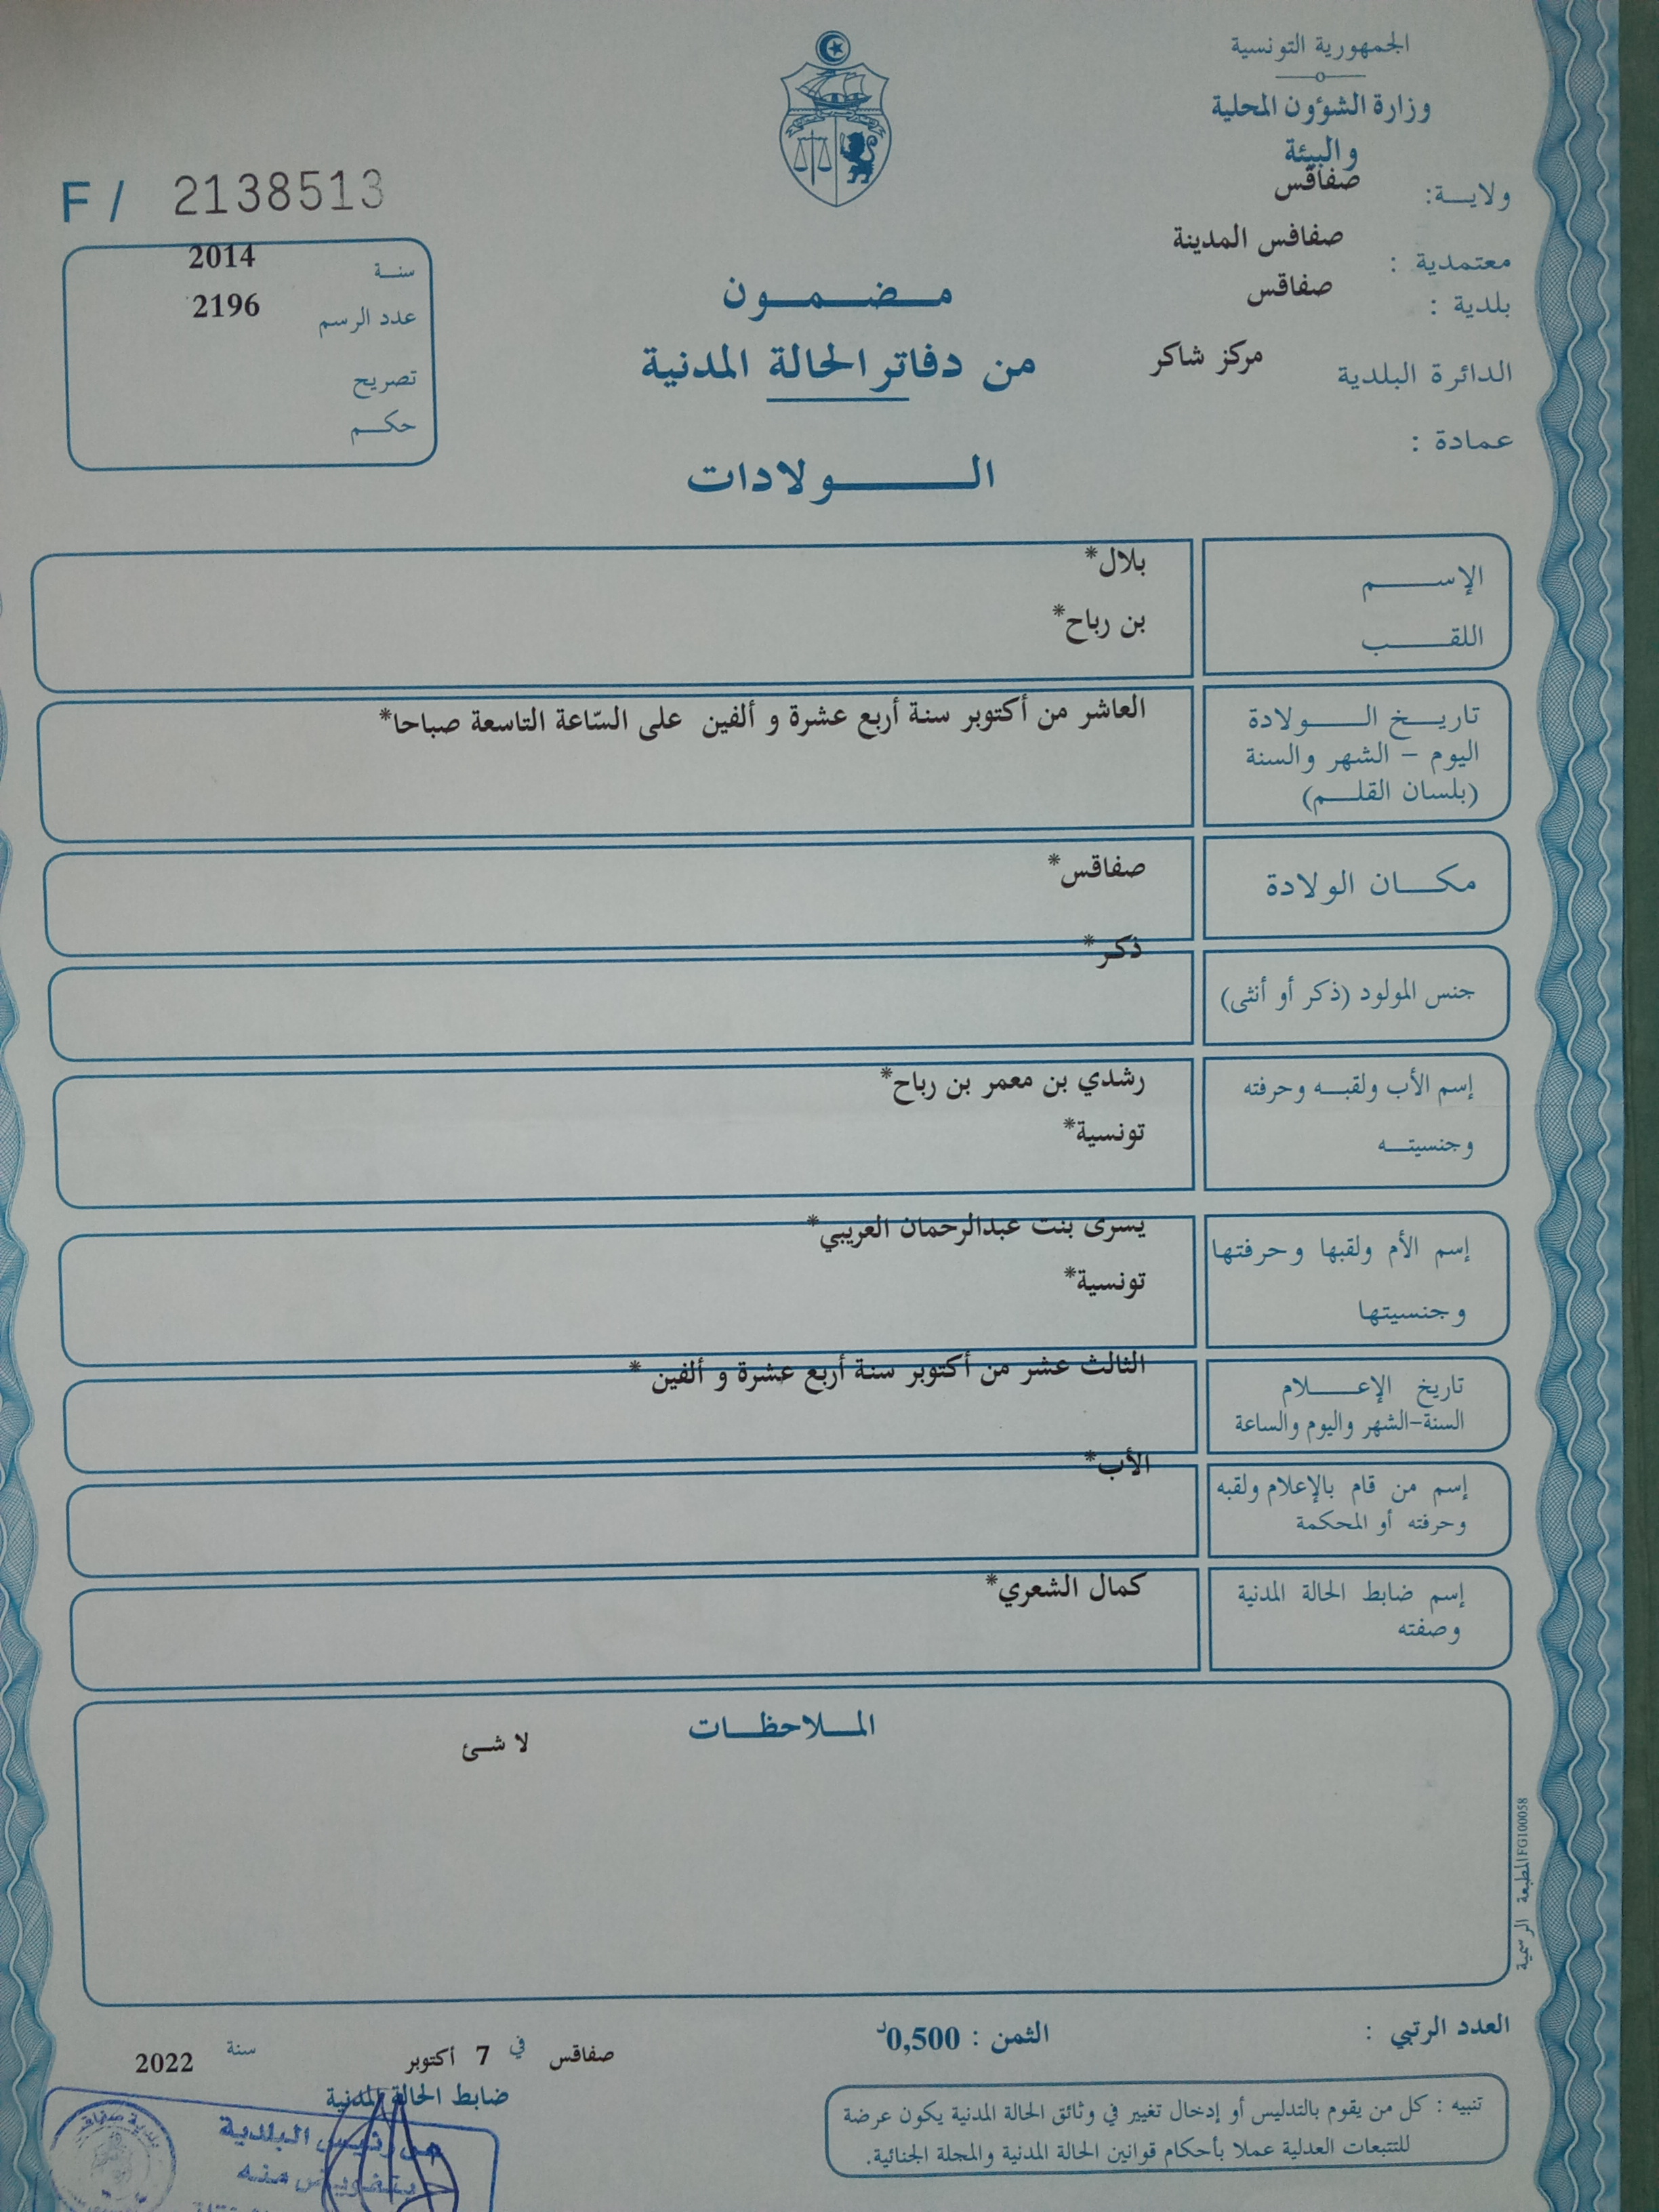 الجمهورية التونسية
وزارة الشؤون المحلية
والبيئة
ولاية: صفاقس
معتمدية : صفاقس المدينة
بلدية : صفاقس
الدائرة البلدية مركز شاكر
عمادة :
F / 2138513
سنة 2014
عدد الرسم 2196
تصريح
حكم
مضمون
من دفاتر الحالة المدنية
الولادات
الإسم بلال*
اللقب بن رباح*
تاريخ الولادة العاشر من أكتوبر سنة أربع عشرة و ألفين على السّاعة التاسعة صباحا*
اليوم - الشهر والسنة
(بلسان القلم)
مكان الولادة صفاقس*
جنس المولود (ذكر أو أنثى) ذكر*
إسم الأب ولقبه وحرفته رشدي بن معمر بن رباح*
وجنسيته تونسية*
إسم الأم ولقبها وحرفتها يسرى بنت عبدالرحمان العريبي*
وجنسيتها تونسية*
تاريخ الإعلام الثالث عشر من أكتوبر سنة أربع عشرة و ألفين *
السنة-الشهر واليوم والساعة
إسم من قام بالإعلام ولقبه الأب*
وحرفته أو المحكمة
إسم ضابط الحالة المدنية كمال الشعري*
وصفته
الملاحظات
لا شئ
المطبعة الرسمية FG100058
العدد الرتبي :
الثمن : 0,500د
صفاقس في 7 أكتوبر سنة 2022
ضابط الحالة المدنية
عن رئيس البلدية
وبتفويض منه
بلدية صفاقس
تنبيه : كل من يقوم بالتدليس أو إدخال تغيير في وثائق الحالة المدنية يكون عرضة
للتتبعات العدلية عملا بأحكام قوانين الحالة المدنية والمجلة الجنائية.